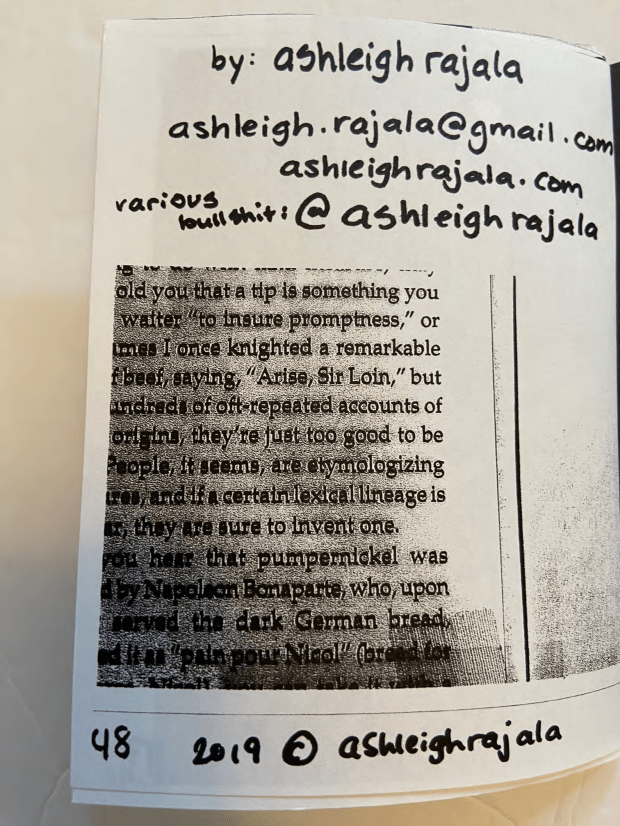 by: ashleigh rajala
ashleigh.rajala@gmail.com
ashleighrajala.com
various
bullshit: @ashleighrajala
old you that a tip is something you
waiter “to insure promptness,” or
ames I once knighted a remarkable
f beef, saying, “Arise, Sir Loin,” but
undreds of oft-repeated accounts of
origins, they’re just too good to be
People, it seems, are etymologizing
ures, and if a certain lexical lineage is
ar, they are sure to invent one.
you hear that pumpernickel was
d by Napoleon Bonaparte, who, upon
served the dark German bread,
ed it as “pain pour Nicol” (bread for
48 2019 © ashleighrajala